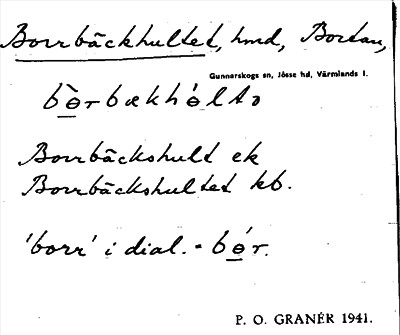 Borrbäckhultet, hmd, Bortan,
Gunnarskogs sn, Jösse hd, Värmlands l.
bɵ̀rbækhɵ́ltɔ
Borrbäckshult ek
Borrbäckshultet kb.
'borr' i dial. = bɵ́r.
P. O. GRANÉR 1941.